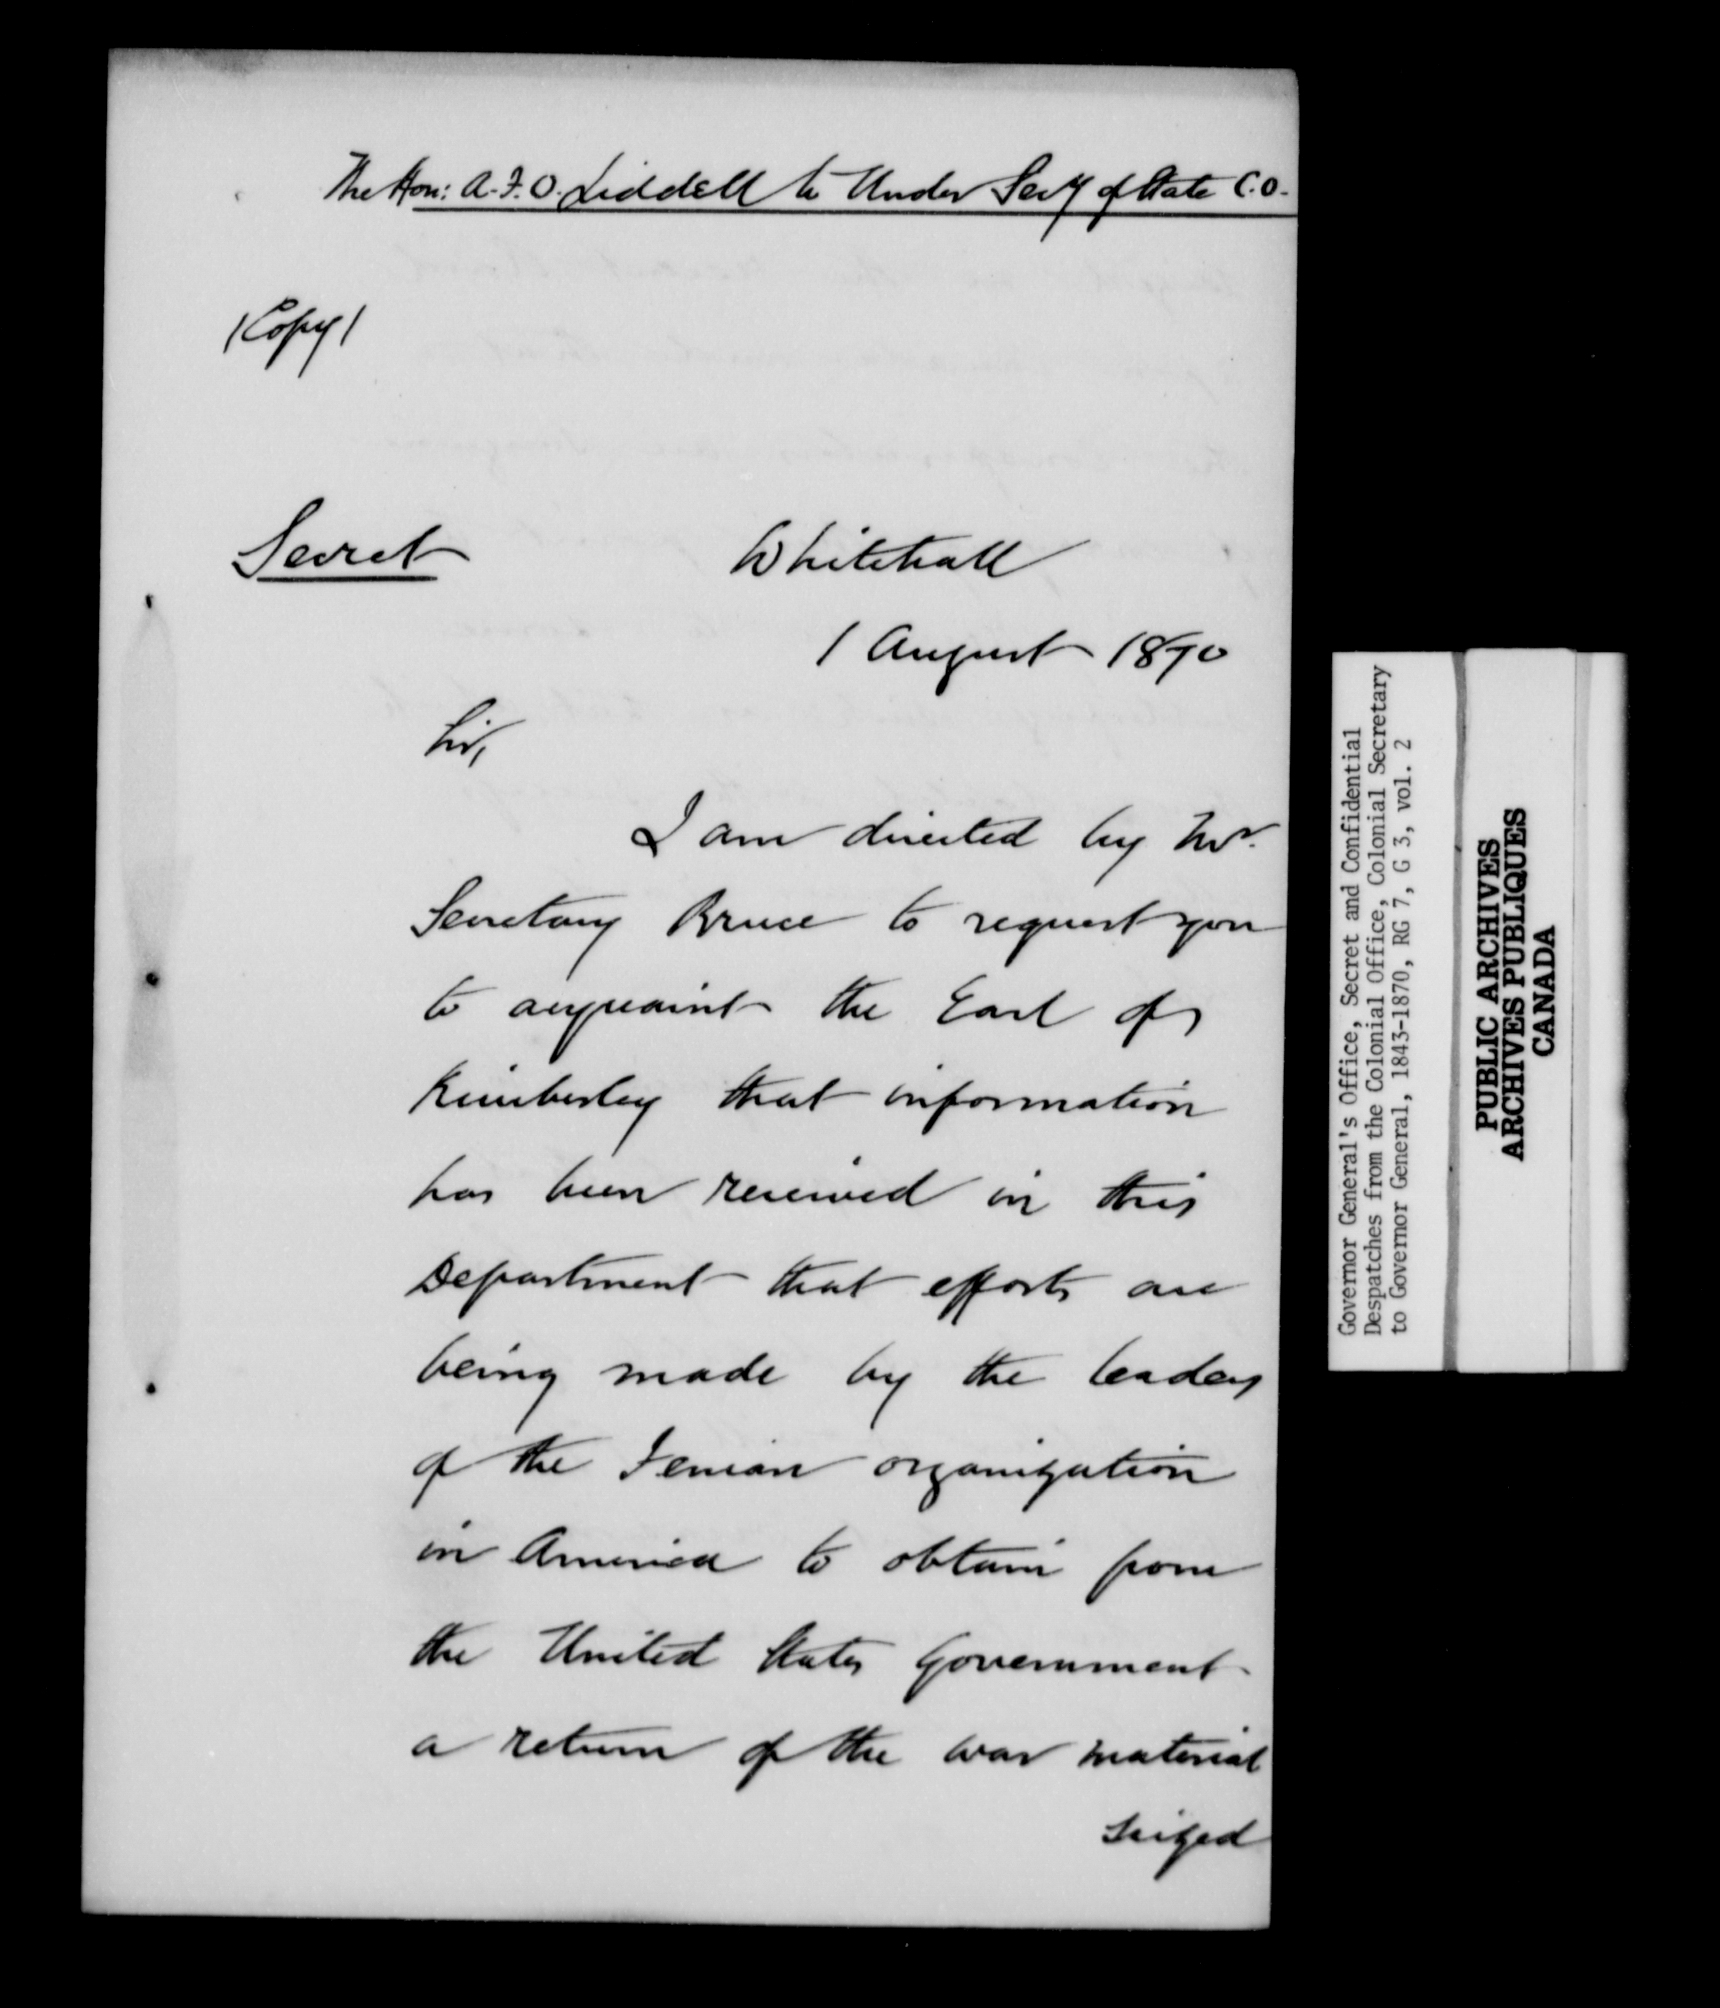 The Hon: A. F. O. Liddell to Under Secy of State C.O.
(Copy)
Secret
Whitehall
1 August 1870
Sir,
I am directed by Mr.
Secretary Bruce to request you
to acquaint the Earl of
Kimberley that information
has been received in this
Department that efforts are
being made by the leaders
of the Fenian organization
in America to obtain from
the United States Government
a return of the war material
seized
Governor General's Office, Secret and Confidential
Despatches from the Colonial Office, Colonial Secretary
to Governor General, 1843-1870, RG 7, G 3, vol. 2
PUBLIC ARCHIVES
ARCHIVES PUBLIQUES
CANADA